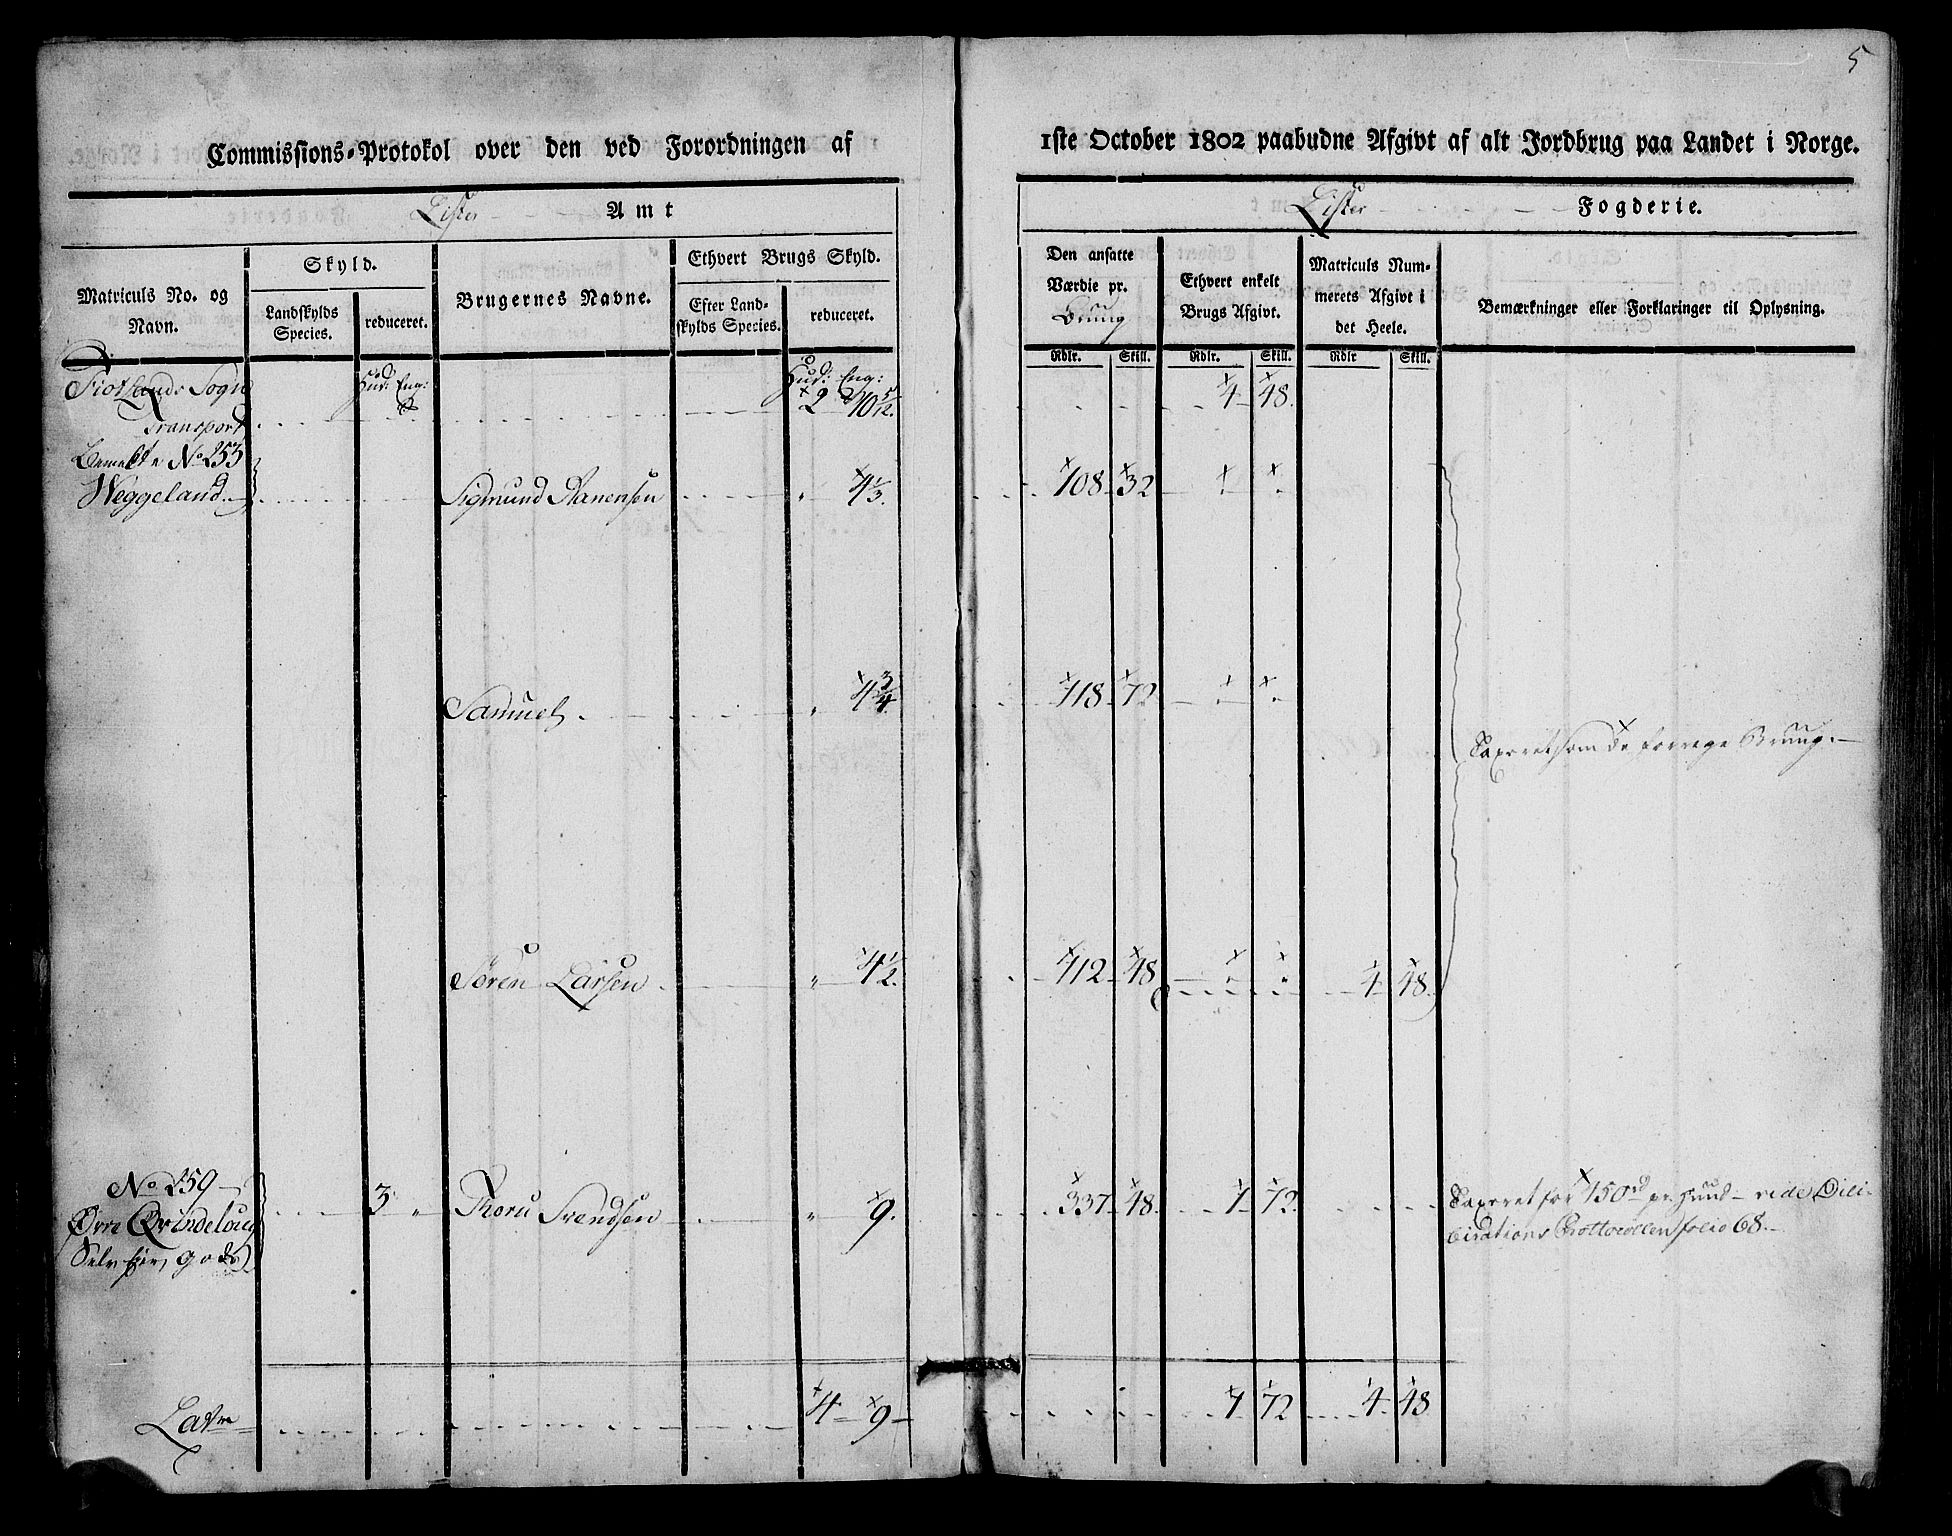 5
Commissions-Protokol over den ved Forordningen af
1ste October 1802 paabudne Afgivt af alt Jordbrug paa Landet i Norge.
Lister Amt
Lister Fogderie.
Matriculs No. og Navn.
Skyld.
Landskylds Species.
reduceret.
Brugernes Navne.
Ethvert Brugs Skyld.
Efter Landskylds Species.
reduceret.
Den ansatte Værdie pr.
Bruug
Ethvert enkelt Brugs Afgivt.
Matriculs Nummerets Afgivt i det Heele.
Bemærkninger eller Forklaringer til Oplysning.
Rdlr. Skill. Rdlr. Skill. Rdlr Skill.
Fiotlands Sogn Hud: Eng: Hud: Eng:
Transport 2 10 5/12. 4 48.
Bemelte No 253
Weggeland Sigmund Aanensen " 4 1/3. 108 32
Samuel " 4 3/4. 118 72
Taxeret som de forrige Bruug.
Søren Larsen " 4 1/2. 112 48 4 48.
No 259
Øvre Qvindeloug 3 " Svendsen " 9. 337 48. 7 72.
Selvejer gods
Taxeret for 150 rd pr. Huud vide Deliberations Prottocollen folio 68.
Lat 4 9 7 72 4 48